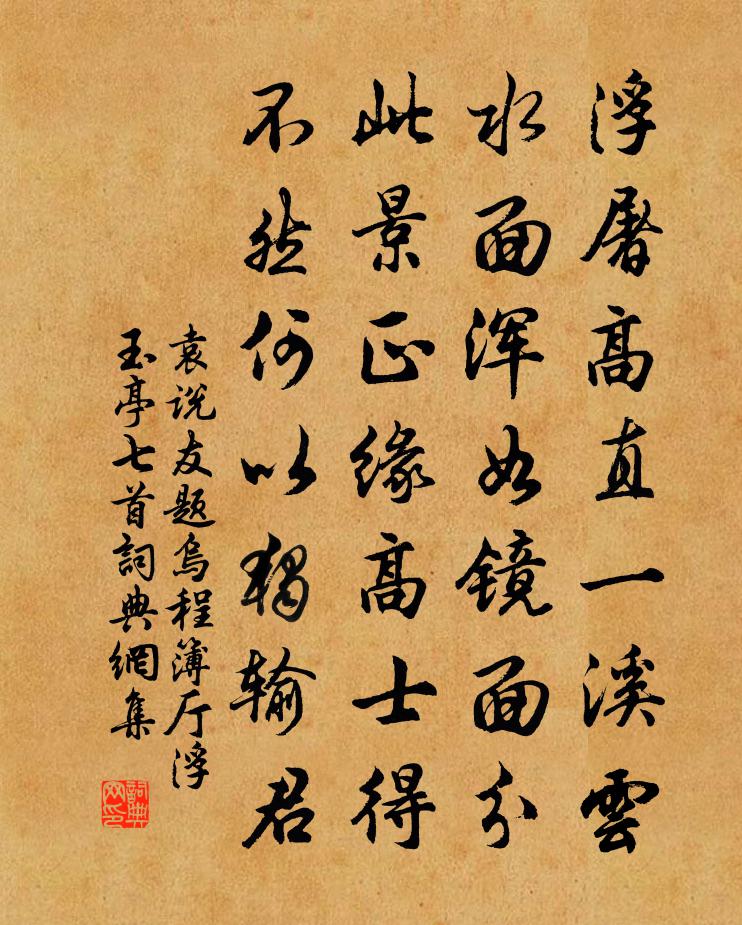 浮屠高直一溪雲
水面浑如镜面分
此景正缘高士得
不然何以独输君
袁说友题烏程簿厅浮
玉亭七首詞典網集
詞典网印